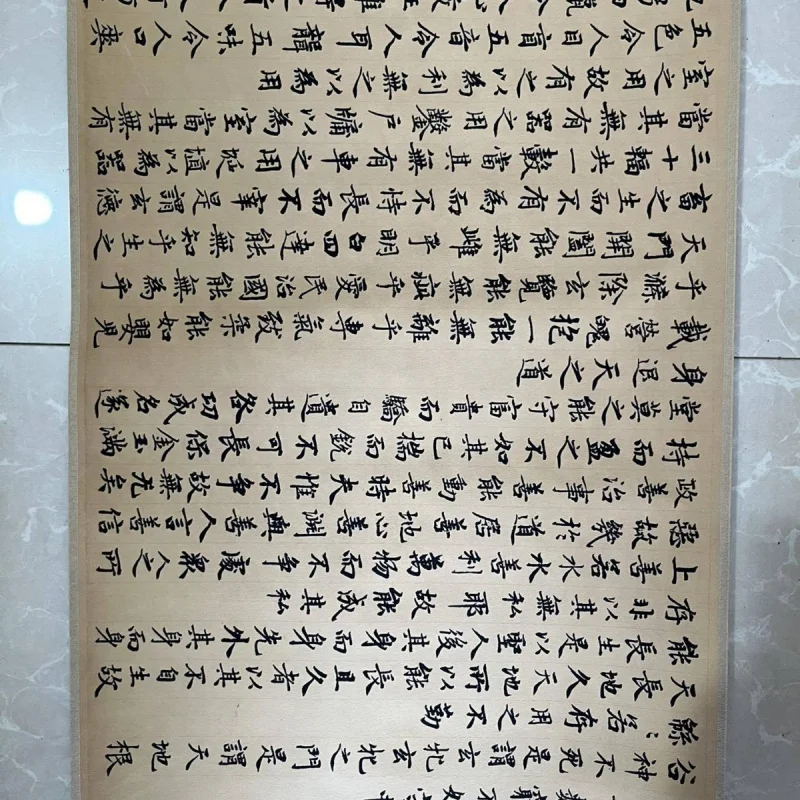 谷神不死是謂玄牝玄牝之門是謂天地根
緜〻若存用之不勤
天長地久天地所以能長且久者以其不自生故
能長生是以聖人後其身而身先外其身而身
存非以其無私耶故能成其私
上善若水水善利萬物而不爭處眾人之所
惡故幾於道居善地心善淵與善人言善信
政善治事善能動善時夫惟不爭故無尤矣
持而盈之不如其已揣而銳不可長保金玉滿
堂莫之能守富貴而驕自遺其咎功成名遂
身退天之道
載營魄抱一能無離乎專氣致柔能如嬰兒
乎滌除玄覽能無疵乎愛民治國能無為乎
天門開闔能無雌乎明白四達能無知乎生之
畜之生而不有為而不恃長而不宰是謂玄德
三十輻共一轂當其無有車之用埏埴以為器
當其無有器之用鑿戶牖以為室當其無有
室之用故有之以為利無之以為用
五色令人目盲五音令人耳聾五味令人口爽